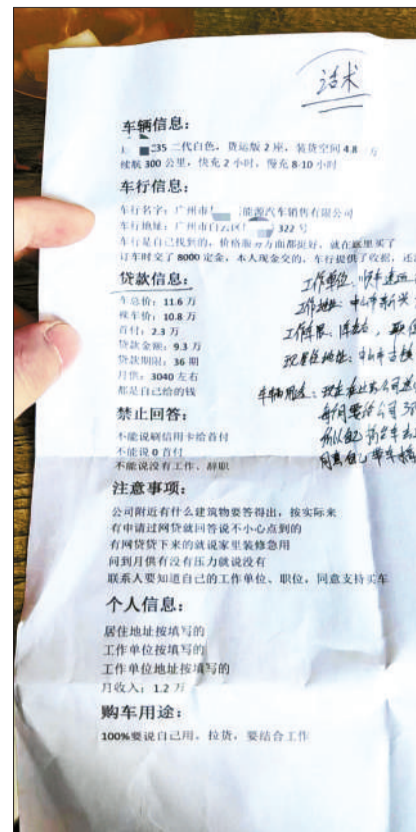 话术
车辆信息：
35 二代白色，货运版 2 座，装货空间 4.8 方
续航 300 公里，快充 2 小时，慢充 8-10 小时
车行信息：
车行名字：广州市 能源汽车销售有限公司
车行地址：广州市白云区 322 号
车行是自己找到的，价格服务方面都挺好，就在这里买了
订车时交了 8000 定金，本人现金交的，车行提供了收据，还
贷款信息：
车总价：11.6 万
裸车价：10.8 万
首付：2.3 万
贷款金额：9.3 万
贷款期限：36 期
月供：3040 左右
都是自己给的钱
工作单位：顺丰速运
工作地址：中山市
现居住地址：中山市古镇
车辆用途：现在
每月要给公司
禁止回答：
不能说刷信用卡给首付
不能说 0 首付
不能说没有工作、辞职
注意事项：
公司附近有什么建筑物要答得出，按实际来
有申请过网贷就回答说不小心点到的
有网贷贷下来的就说家里装修急用
问到月供有没有压力就说没有
联系人要知道自己的工作单位、职位，同意支持买车
个人信息：
居住地址按填写的
工作单位按填写的
工作单位地址按填写的
月收入：1.2 万
购车用途：
100%要说自己用，拉货，要结合工作